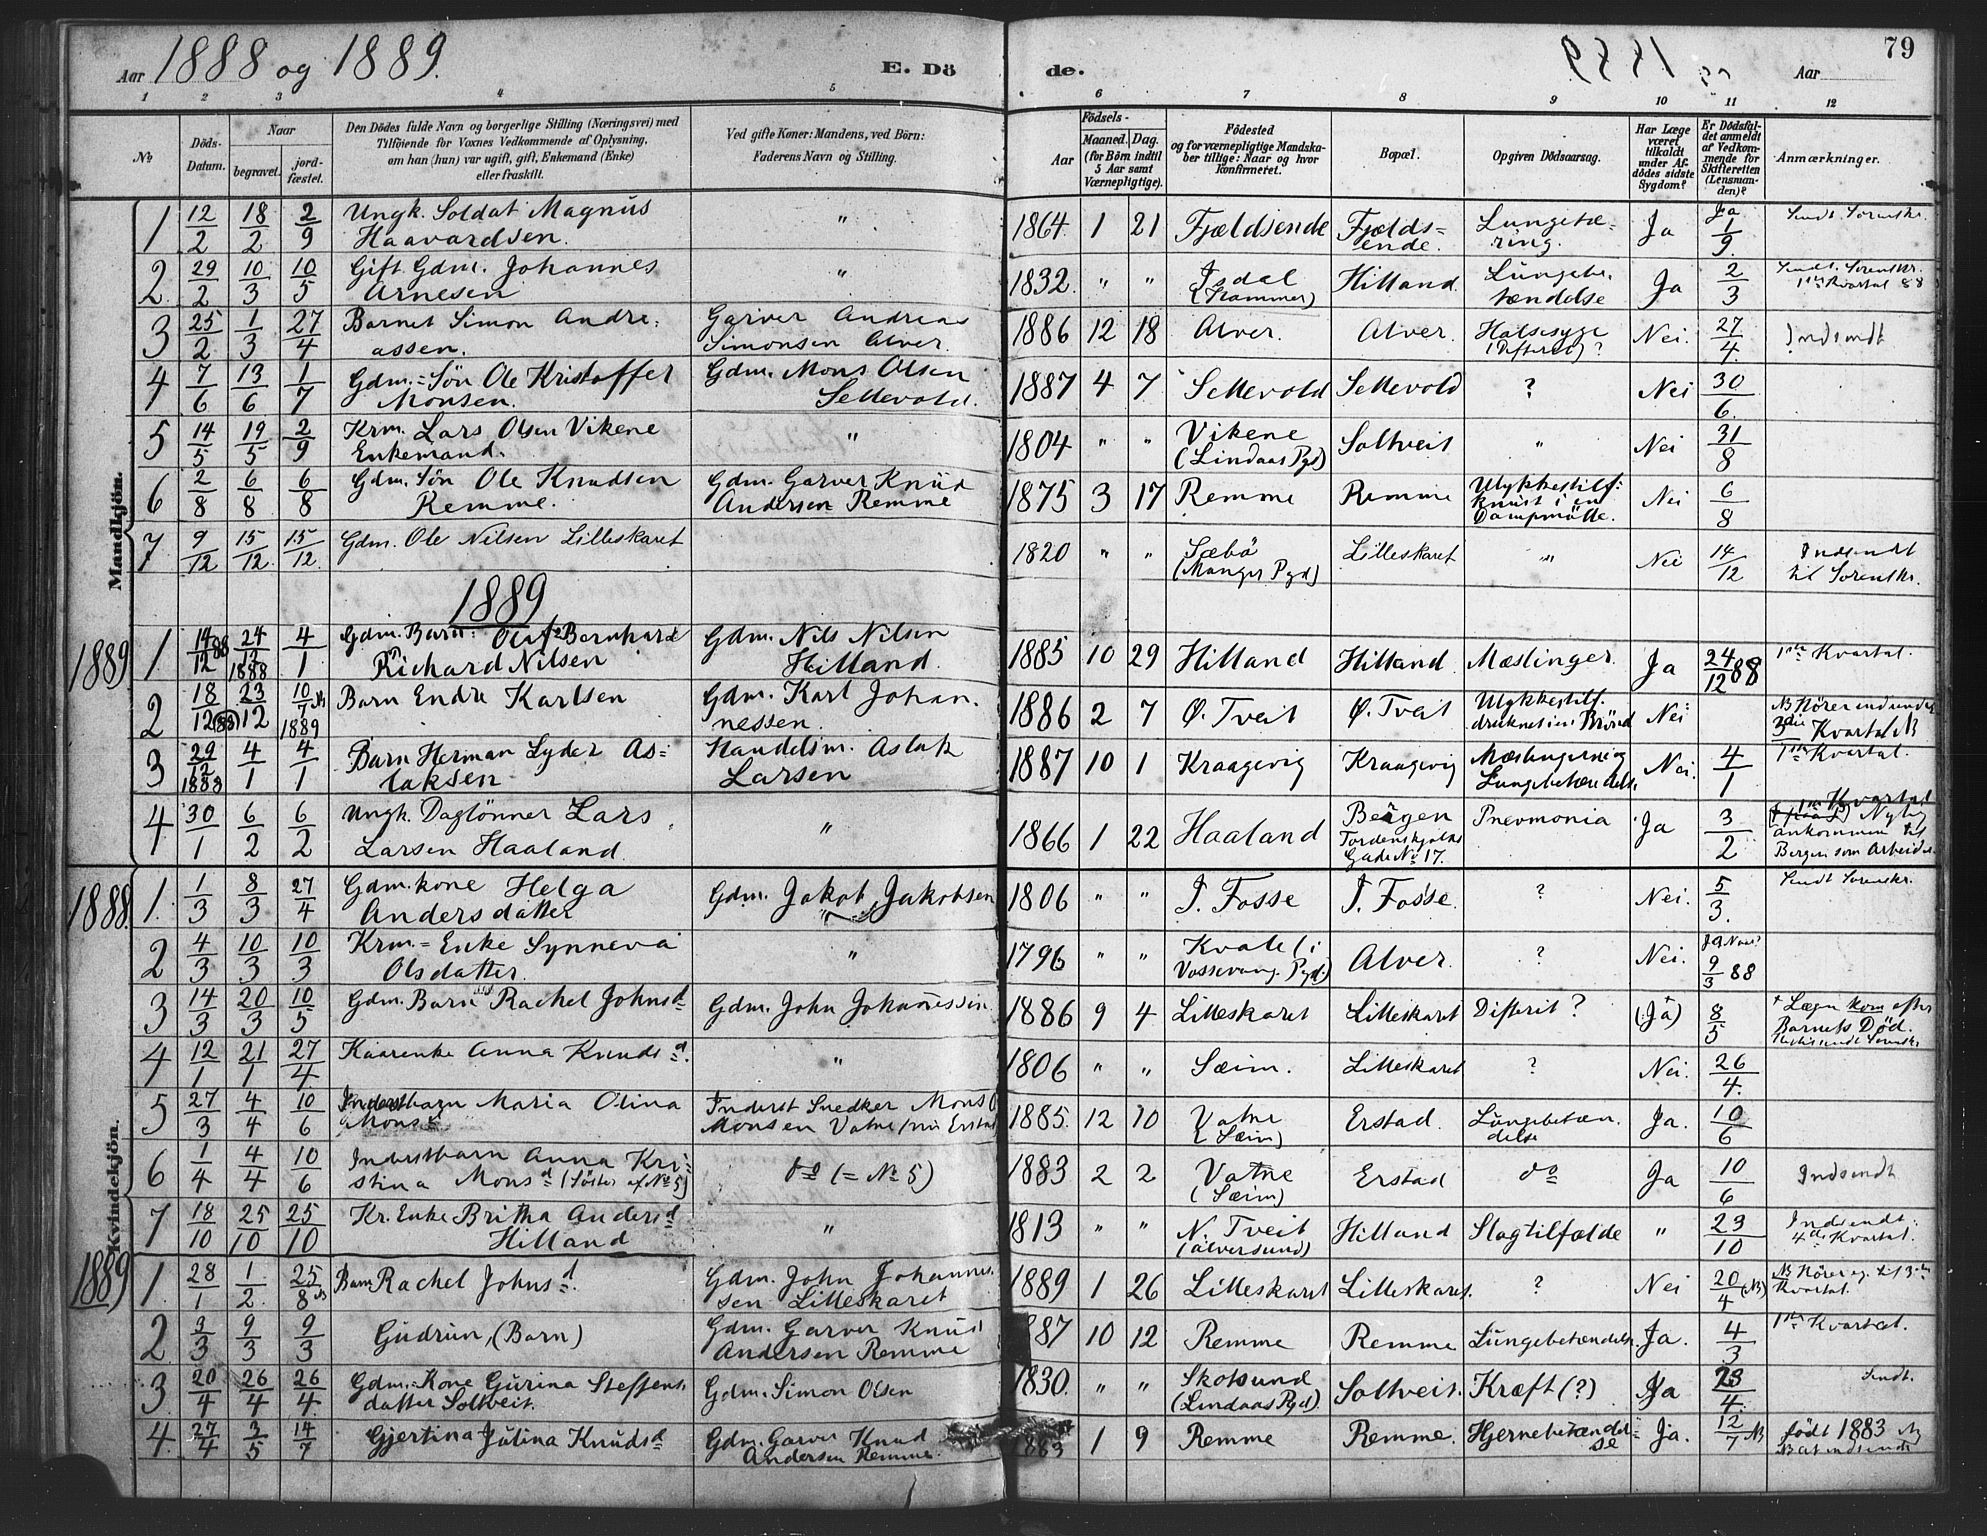 Aar 1888 og 1889. E. Dö de. Aar 79
1 2 3 4 5 6 7 8 9 10 11 12
№ Döds-Datum. Naar begravet. jord-fæstet.
Den Dödes fulde Navn og borgerlige Stilling (Næringsvei) med
Tilföiende for Voxnes Vedkommende af Oplysning,
om han (hun) var ugift, gift, Enkemand (Enke)
eller fraskilt.
Ved gifte Koner: Mandens, ved Börn:
Faderens Navn og Stilling.
Födsels-
Aar Maaned. Dag.
(for Börn indtil
5 Aar samt
Værnepligtige).
Födested
og for værnepligtige Mandska-
ber tillige: Naar og hvor
konfirmeret.
Bopæl.
Opgiven Dödsaarsag.
Har Læge
været
tilkaldt
under Af-
dödes sidste
Sygdom?
Er Dödsfal-
det anmeldt
af Vedkom-
mende for
Skifteretten
(Lensman-
den)?
Anmærkninger.
Mandkjön.
1 12/2 18/2 2/9 Ungk. Soldat Magnus Haavardsen. " 1864 1 21 Fjeldsende Fjelds=ende. Lungetæ=ring. Ja Ja 1/9. Sendt Sorenskr.
2 29/2 10/3 10/5 Gift Gdm. Johannes Arnesen " 1832. " " Isdal (Hammer) Hilland. Lungebe.tændelse Ja 2/3 Sendt. Sorenskr. 1ste Kvartal 88
3 25/2 1/3 27/4 Barnet Simon Andre=assen. Garver Andreas Simonsen Alver. 1886 12 18 Alver. Alver. Halssyge (Difterit) ? Nei. 27/4. Indsendt
4 7/6 13/6 1/7 Gdm.=Sön Ole Kristoffer Monsen. Gdm. Mons Olsen Sellevold. 1887 4 7 Sellevold Sellevold ? Nei 30/6.
5 14/5 19/5 2/9 Krm. Lars Olsen Vikene Enkemand. " 1804 " " Vikene (Lindaas Pgd) Soltveit " Nei 31/8
6 2/8 6/8 6/8 Gdm. Sön Ole Knudsen Remme. Gdm. Garver Knud Andersen Remme 1875 3 17 Remme Remme Ulykkestilf: knust i en Dampmölle. Nei 6/8
7 9/12 15/12 15/12 Gdm. Ole Nilsen Lilleskaret 1820 " " Sæbö (Manger Pgd) Lilleskaret " Nei 14/12 Indsendt til Sorenskr.
1889
1889 1 14/12 88 24/12 1888 4/1 Gdm. Barn: Olaf Bernhard Richard Nilsen Gdm. Nils Nilsen Hilland. 1885 10 29 Hilland Hilland. Mæslinger. Ja 24/12 88 1ste Kvartal.
2 18/12 (88) 23/12 10/7 1889 Barn Endre Karlsen Gdm. Karl Johan.nessen. 1886 2 7 Ø. Tveit Ø. Tveit Ulykkestilf. druknet i en Brönd Nei NB Hörer 3die Kvartal NB
3 29/12 1888 4/1 4/1 Barn Herman Lyder As=laksen Handelsm. Aslak Larsen 1887 10 1 Kraagevig Kraagevig Mæslinger og Lungebetændels. Nei. 4/1 1ste Kvartal.
4 30/1 6/2 6/2 Ungk. Daglönner Lars Larsen Haaland. " 1866 1 22 Haaland Bergen Tordenskjolds Gade No 17. Pnevmonia Ja 3/2 1ste Kvartal Nylig ankommen til Bergen som Arbeider
Kvindekjön.
1888. 1. 1/3 8/3 27/4 Gdm.kone Helga Andersdatter Gdm. Jakob Jakobsen 1806 " " I. Fosse I. Fosse. ? Nei. 5/3. Sendt Sorenskr.
2 4/3 10/3 10/3 Krm.= Enke Synneva Olsdatter. " 1796 " " Kvale (i Vossevang. Pgd.) Alver. ? Nei. 9/3 88
3 14/3 20/3 10/5 Gdm. Barn Rachel Johnsd Gdm. John Johannessen 1886 9 4 Lilleskaret Lilleskaret Difterit ? (Ja) 8/5 + Lægen kom efter Barnets Död.
4 12/1 21/1 27/4 Kaarenke Anna Knudsd. " 1806 " " Sæim. Lilleskaret ? Nei. 26/4.
5 27/3 4/4 10/6 Inderstbarn Maria Olina Monsd Inderst Snedker Mons Monsen Vatne (nu Erstad 1885. 12 10 Vatne (Sæim) Erstad. Lungebetæn.delse Ja. 10/6
6 1/4 4/4 10/6 Inderstbarn Anna Kri=stina Monsd (Söster af No 5) do (= No 5) 1883 2 2 Vatne (Sæim) Erstad do Ja 10/6 Indsendt
7 18/10 25/10 25/10 Kr. Enke Britha Andersd Hilland " 1813 " " N. Tveit (Alversund) Hilland Slagtilfælde " 23/10 Indsendt. 4de Kvartal.
1889 1 28/1 1/2 25/8 NB Barn Rachel Johnsd. Gdm. John Johannes.sen Lilleskaret 1889 1 26 Lilleskaret Lilleskaret. ? Nei 20/4 (NB) NB Hörer til 3die Kvartal.
2 3/3 9/3 9/3 Gudrun, (Barn) Gdm. Garver Knud Andersen Remme 887 10 12 Remme Remme Lungebetændels. Ja. 4/3 1ste Kvartal.
3 20/4 26/4 26/4. Gdm.=Kone Gurina Steffens.datter Soltveit. Gdm. Simon Olsen 1830. " " Skotsund (Lindaas Pgd) Soltveit. Kræft (?) Ja 23/4. Sendt.
4. 27/4 3/5 14/7 Gjertina Julina Knudsd Gdm. Garver Knud Andersen Remme. 1883 1 9 Remme Remme. Hjernebetændel=se Ja. 12/7 NB födt 1883